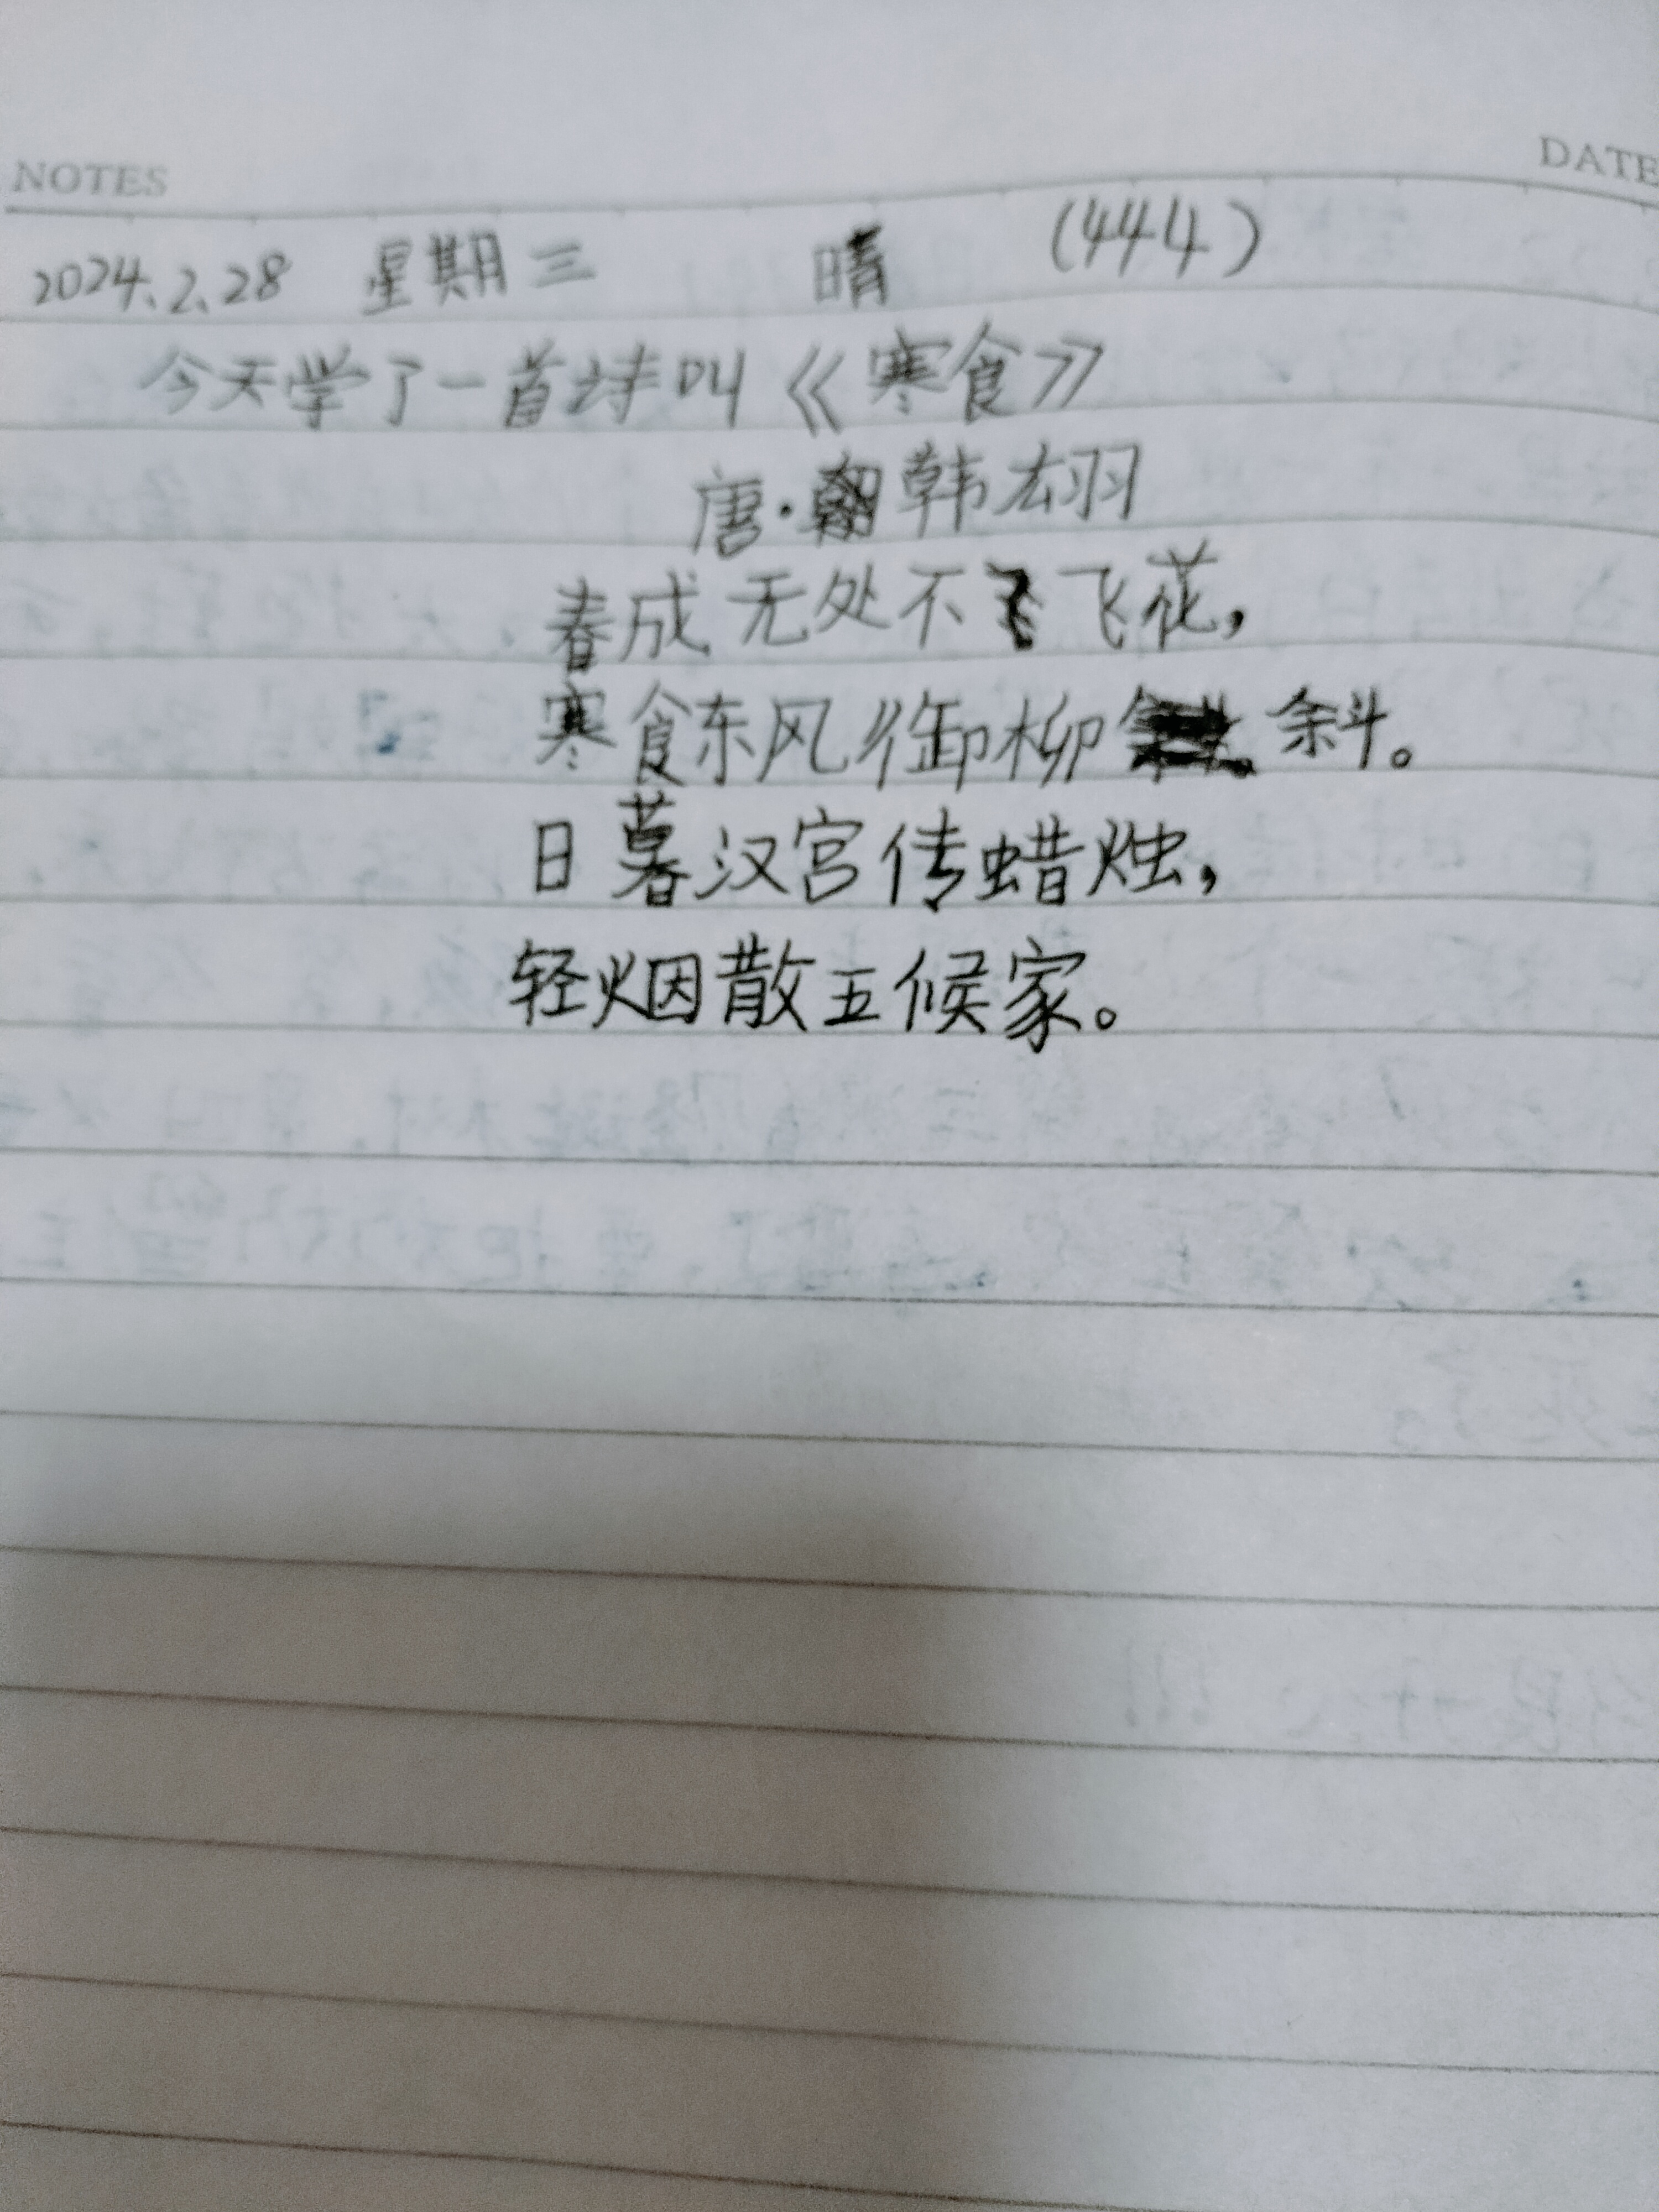 NOTES DATE
2024.2.28 星期三 晴 (444)
今天学了一首诗叫《寒食》
唐·韩翃
春成无处不飞花,
寒食东风御柳斜。
日暮汉宫传蜡烛,
轻烟散五候家。